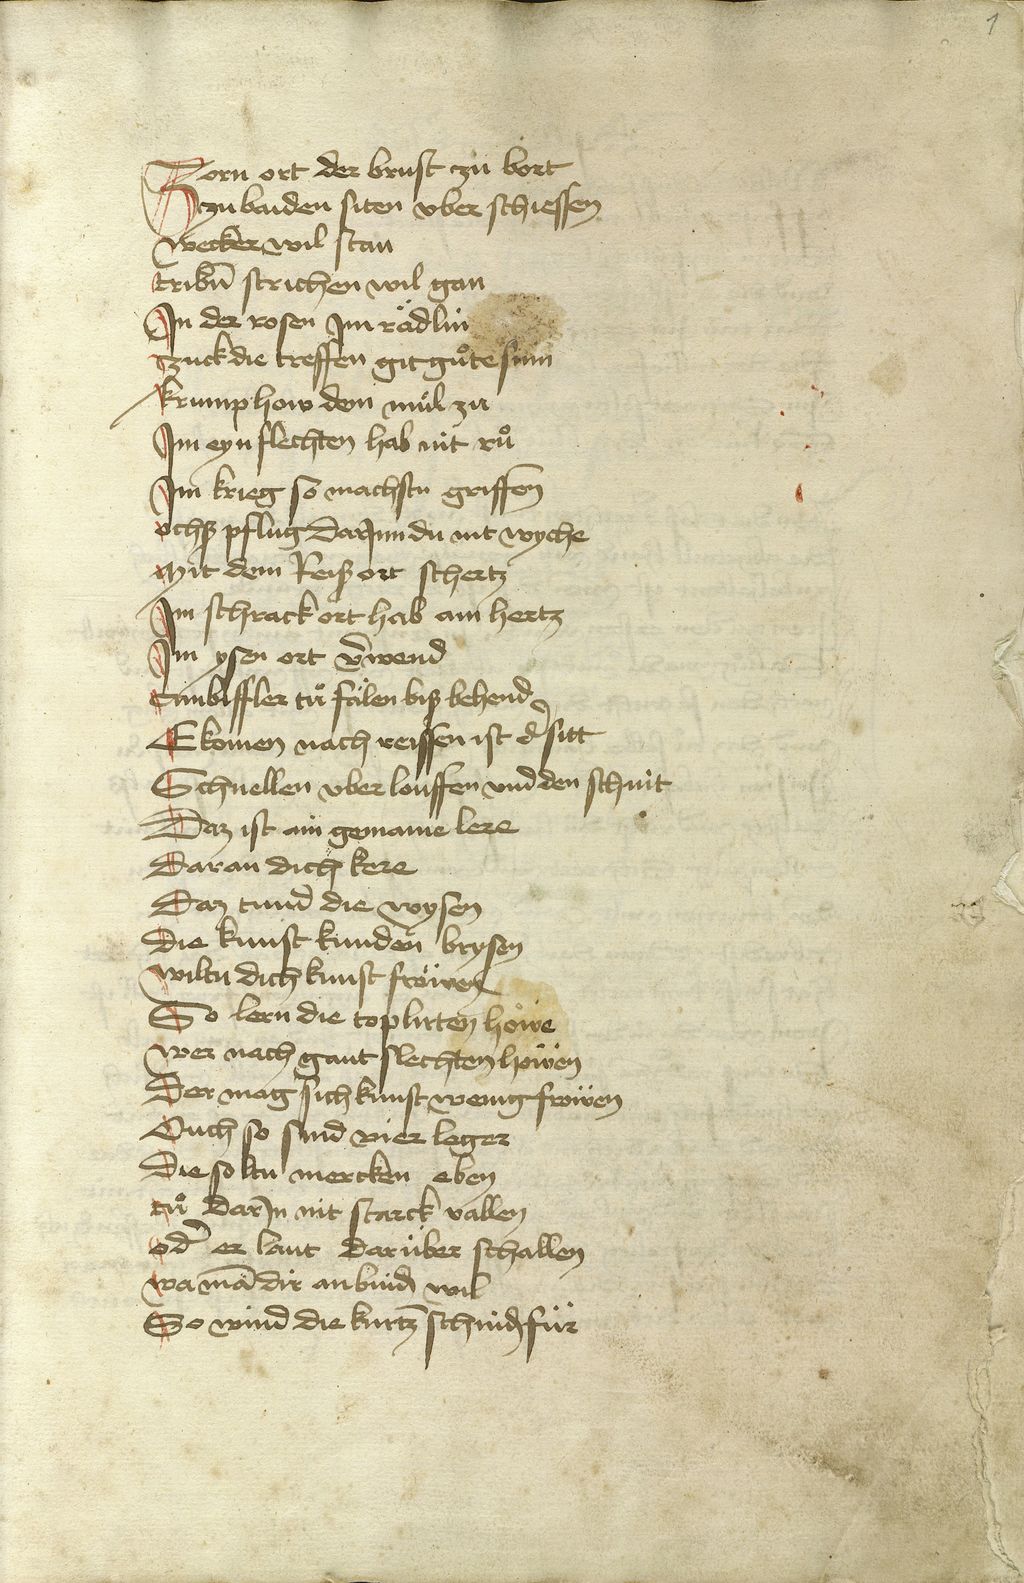 1
Zorn ort der brust zu bort
Zzu baiden siten vber schiessen
wecker wil stan
tribn̄ strichen wil gan
In der rosen Im rädlin
Zzuck die treffen git gůte sinn
krump how dem mül zu
Im eyn flechten hab nit rů
Im krieg so machstu griffen
ochß pflug Dar Inn du nit wyche
Mit dem Reiß ort schertz
Im schrack ort hab am hertz
Im ysen ort v̄wend
tanbiffler tů fälen biß behend
Ekomen nach reissen ist d̓ sitt
Schnellen vber louffen vnd den schnit
Daz ist ain gemaine lere
Daran dich kere
Daz tund die wysen
Die kunst kunden brysen
wiltu dich kunst fröwen
So lern die toplirten höwe
wer nach gaut slechten höwen
Der mag sich kunst wenig fröwen
Ouch so sind vier leger
Die soltu mercken eben
tů Dar In nit starck vallen
od̓ er laut Darüber schallen
wa mā dir anbind̓ wil
So wind die kurtz̄ schnid̓ für